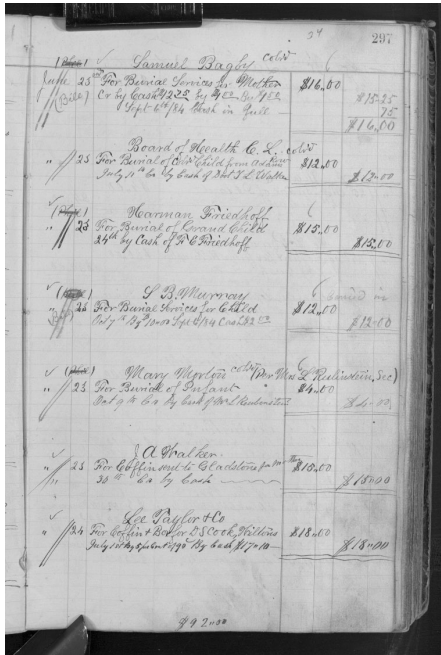 24 297
Samuel Bagby Cold
June 25 For Burial Services for Mother $16.00
(Bill) Cr by Cash by $15.25
Sept 6th/84 Cash in full 75
$16.00
Board of Health C. L. cold
" 25 For Burial of Cold Child from $12.00
July 11th Cr by Cash of $12.00
Harman Friedhoff
" 25 For Burial of Grand Child $15.00
24th by Cash of F C Friedhoff $15.00
S B Murray
" 26 For Burial Services for Child $12.00
Oct 7th By Sept 6/84 Cash $2.00 $12.00
Mary Morton cold (Per Mrs L Rubinstein, Sec)
" 25 For Burial of Infant $4.00
Oct 9th Cr by Cash of Mrs L Rubinstein $4.00
J A Walker
" 25 For Coffin sent to Gladstone $15.00
" 30th Cr by Cash $15.00
Lee Taylor & Co
" 24 For Coffin & Box for D S Cook, Tiltons $18.00
July 1st By By Cash $17.10 $18.00
$92.00